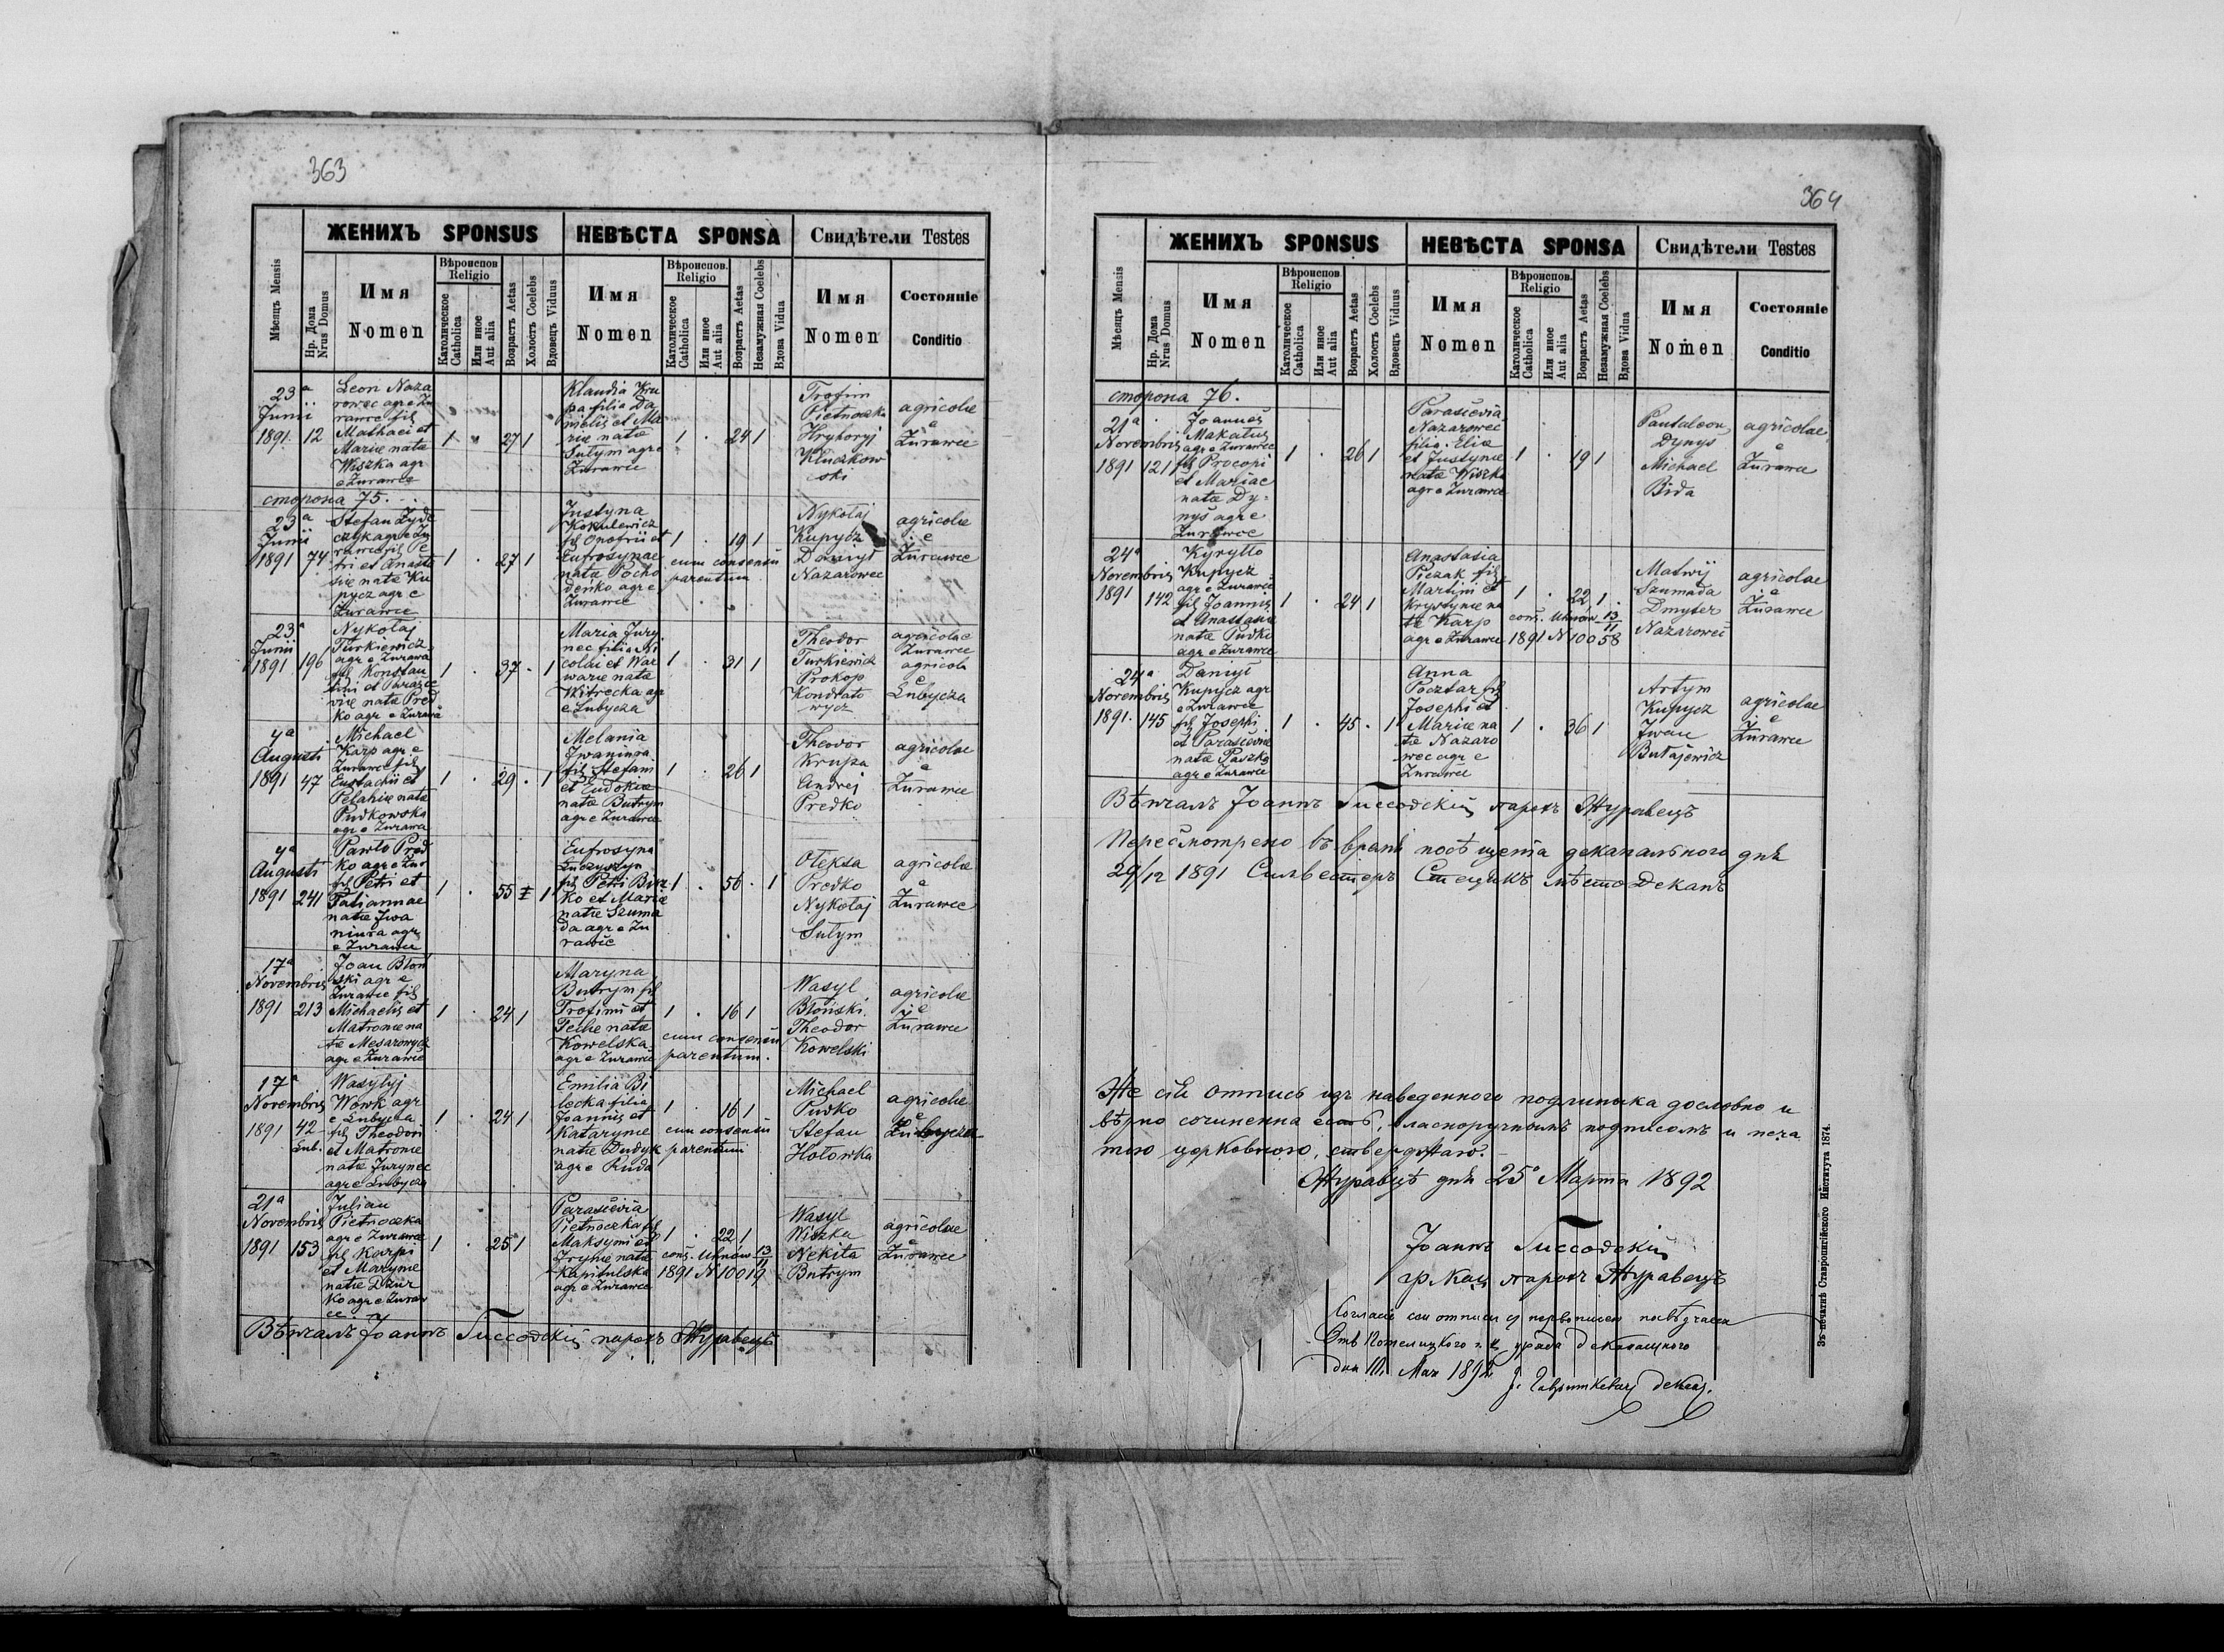 363
ЖЕНИХЪ SPONSUS
НЕВѢСТА SPONSA
Свидѣтели Testes
Мѣсяцъ Mensis
Нр. Дома
Nrus Domus
Имя
Nomen
Вѣроиспов.
Religio
Католическое
Catholica
Или иное
Aut alia
Возрастъ Aetas
Холостъ Coelebs
Вдовецъ Viduus
Имя
Nomen
Вѣроиспов.
Religio
Католическое
Catholica
Или иное
Aut alia
Возрастъ Aetas
Незамужная Coelebs
Вдова Vidua
Имя
Nomen
Состояніе
Conditio
23a
Junii
1891 12
Leon Naza
rowec agr e Żu
rawce fils
Mathaei et
Mariae natae
Wiszka agr
e Żurawce
1 . 27 1
Klaudia Kru
pa filia Da
nielis et Ma
riae natae
Sutym agr e
Żurawce
1 . 24 1
Trofim
Pietnoczka
Hryhoryj
Kluczkow
ski
agricolae
e
Żurawce
сторона 75.
23a
Junii
1891 74
Stefan Żyde
czyk agr e Żu
rawce fils Pe
tri et Anasta
siae natae Ku
pycz agr e
Żurawce
1 . 27 1
Justyna
Kokulewicz
fil Onofrii et
Eufrosynae
natae Pocho
denko agr e
Żurawce
1 . 19 1
cum consensu
parentum
Nykołaj
Kupycz
Danył
Nazarowec
agricolae
e
Żurawce
23a
Junii
1891 196
Nykołaj
Turkiewicz
agr e Żurawce
fils Konstan
tini et Parasce
viae natae Pred
ko agr e Żurawce
1 . 37 . 1
Maria Jury
nec filia Ni
colai et War
warae natae
Witrecka agr
e Lubycza
1 . 31 1
Theodor
Turkiewicz
Prokop
Kondrato
wycz
agricolae
Żurawce
agricola
e
Lubycza
4a
Augusti
1891 47
Michael
Karp agr e
Żurawce fils
Eustachii et
Pelahiae natae
Pudkowska
agr e Żurawce
1 . 29 . 1
Melania
Iwaniura
fils Stefani
et Eudokiae
natae Butrym
agr e Żurawce
1 . 26 1
Theodor
Krupa
Andrej
Predko
agricolae
e
Żurawce
4a
Augusti
1891 241
Pawło Pred
ko agr e Żur
fils Petri et
Tatiannae
natae Iwa
niura agr
e Żurawce
1 . 55 1
Eufrosyna
fils Petri
ko et Mariae
natae Szuma
da agr e Żu
rawce
1 . 50 . 1
Ołeksa
Predko
Nykołaj
Sutym
agricolae
e
Żurawce
17a
Novembris
1891 213
Joan Błoń
ski agr e
Żurawce fils
Michaelis et
Matronae na
tae Mesarowycz
agr e Żurawce
1 . 24 1
Maryna
Butrym fil
Trofimi et
Teclae natae
Kowelska
agr e Żurawce
1 . 16 1
cum consensu
parentum.
Wasyl
Błoński
Theodor
Kowelski
agricolae
e
Żurawce
17a
Novembris
1891 42
Lub.
Wasylyj
Wowk agr
e Lubycza
fils Theodori
et Matronae
natae Jurynec
agr e Lubycza
1 . 24 1
Emilia Bi
lecka filia
Joannis et
Katarynae
natae Dudyk
agr e Ruda
1 . 16 1
cum consensu
parentum
Michael
Pudko
Stefan
Hołowka
agricolae
e
Lubycza
21a
Novembris
1891 153
Julian
Pietnoczka
agr e Żurawce
fils Karpi
et Marynae
natae Dziur
ko agr e Żuraw
ce
1 . 25 1
Parascevia
Pietnoczka fil
Maksymi et
Irynae natae
Kapitulska
agr e Żurawce
1 . 22 1
cons. Uhnów 13/11
1891 N 10019
Wasyl
Wiszka
Nekita
Butrym
agricolae
e
Żurawce
Вѣнчалъ Іоаннъ Гиссовскій парохъ Журавецъ
364
ЖЕНИХЪ SPONSUS
НЕВѢСТА SPONSA
Свидѣтели Testes
Мѣсяцъ Mensis
Нр. Дома
Nrus Domus
Имя
Nomen
Вѣроиспов.
Religio
Католическое
Catholica
Или иное
Aut alia
Возрастъ Aetas
Холостъ Coelebs
Вдовецъ Viduus
Имя
Nomen
Вѣроиспов.
Religio
Католическое
Catholica
Или иное
Aut alia
Возрастъ Aetas
Незамужная Coelebs
Вдова Vidua
Имя
Nomen
Состояніе
Conditio
сторона 76.
21a
Novembris
1891 121
Joannes
Makatus
agr e Żurawce
fils Procopi
et Mariae
natae Dy=
nys agr e
Żurawce
1 . 26 1
Parascevia
Nazarowec
filia Eliae
et Justynae
natae Wiszka
agr e Żurawce
1 . 19 1
Pantaleon
Dynys
Michael
Bida
agricolae
e
Żurawce
24a
Novembris
1891 142
Kyryłło
Kupycz
agr e Żurawce
fils Joannis
et Anastasiae
natae Pudko
agr e Żurawce
1 . 24 1
Anastasia
Piczak fil
Martini et
Krystynae na
tae Karp
agr e Żurawce
1 . 22 1
cons. Uhnów 13/11
1891 N 10058
Matwij
Szumada
Dmyter
Nazarowec
agricolae
e
Żurawce
24a
Novembris
1891. 145
Danył
Kupycz agr
e Żurawce
fils Josephi
et Parasceviae
natae Paszko
agr e Żurawce
1 . 45 . 1
Anna
Pocztar fil
Josephi et
Mariae na
tae Nazaro
wec agr e
Żurawce
1 . 36 1
Artym
Kupycz
Iwan
Butajewicz
agricolae
e
Żurawce
Вѣнчалъ Іоаннъ Гиссовскій парохъ Журавецъ
Пересмотрено въ врани посѣщенія деканального дня
29/12 1891 Сильвестеръ Стецикъ мѣстодеканъ
Же сія отпись изъ наведенного подлиника дословно и
вѣрно сочиненна есть, власноручнымъ подписомъ и печа
тію церковною, ствердтаю.
Журавцѣ дня 25о Марта 1892
Іоаннъ Гиссовскій
гр кат парохъ Журавецъ
Согласіе сеи отписи съ первописею посвѣдчаеся
Отъ Потелицкого г. к. уряда деканацкого
дня 10. Мая 1892
декан.
Зъ печатнѣ Ставропигійского Института 1874.